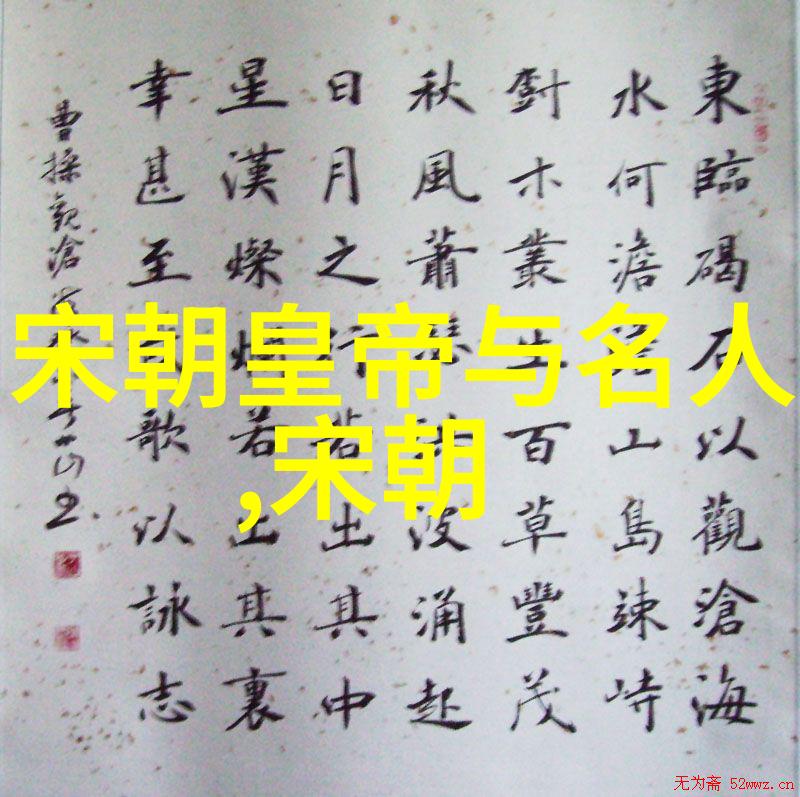 宋朝皇帝与名人
,宋朝
東臨碣石以觀滄海
水何澹山島竦峙
木叢生百草豐茂
秋風蕭波涌起
日月之行若出其中
星漢燦若出其裏
幸甚至歌以詠志
曹操觀滄
无为斋 52wwz.cn